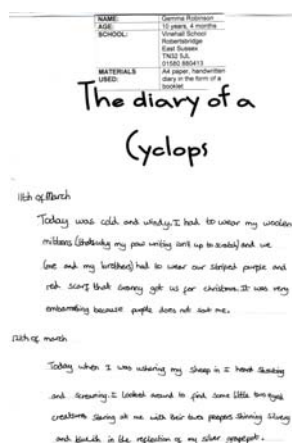 NAME: Gemma Robinson
AGE: 10 years, 4 months
SCHOOL: Vinehall School
Robertsbridge
East Sussex
TN32 5JL
01580 880413
MATERIALS A4 paper, handwritten
USED: diary in the form of a
booklet
The diary of a
Cyclops
11th of March
Today was cold and windy. I had to wear my woolen
mittens (thats why my paw writing isn't up to scratch) and we
(me and my brothers) had to wear our striped purple and
red scarf that granny got us for christmas. It was very
embarrassing because purple does not suit me.
12th of march
Today when I was ushering my sheep in I heard shouting
and screaming. I looked around to find some little two eyed
creatures staring at me with their two peepers shinning silvery
and in the reflection of my silver